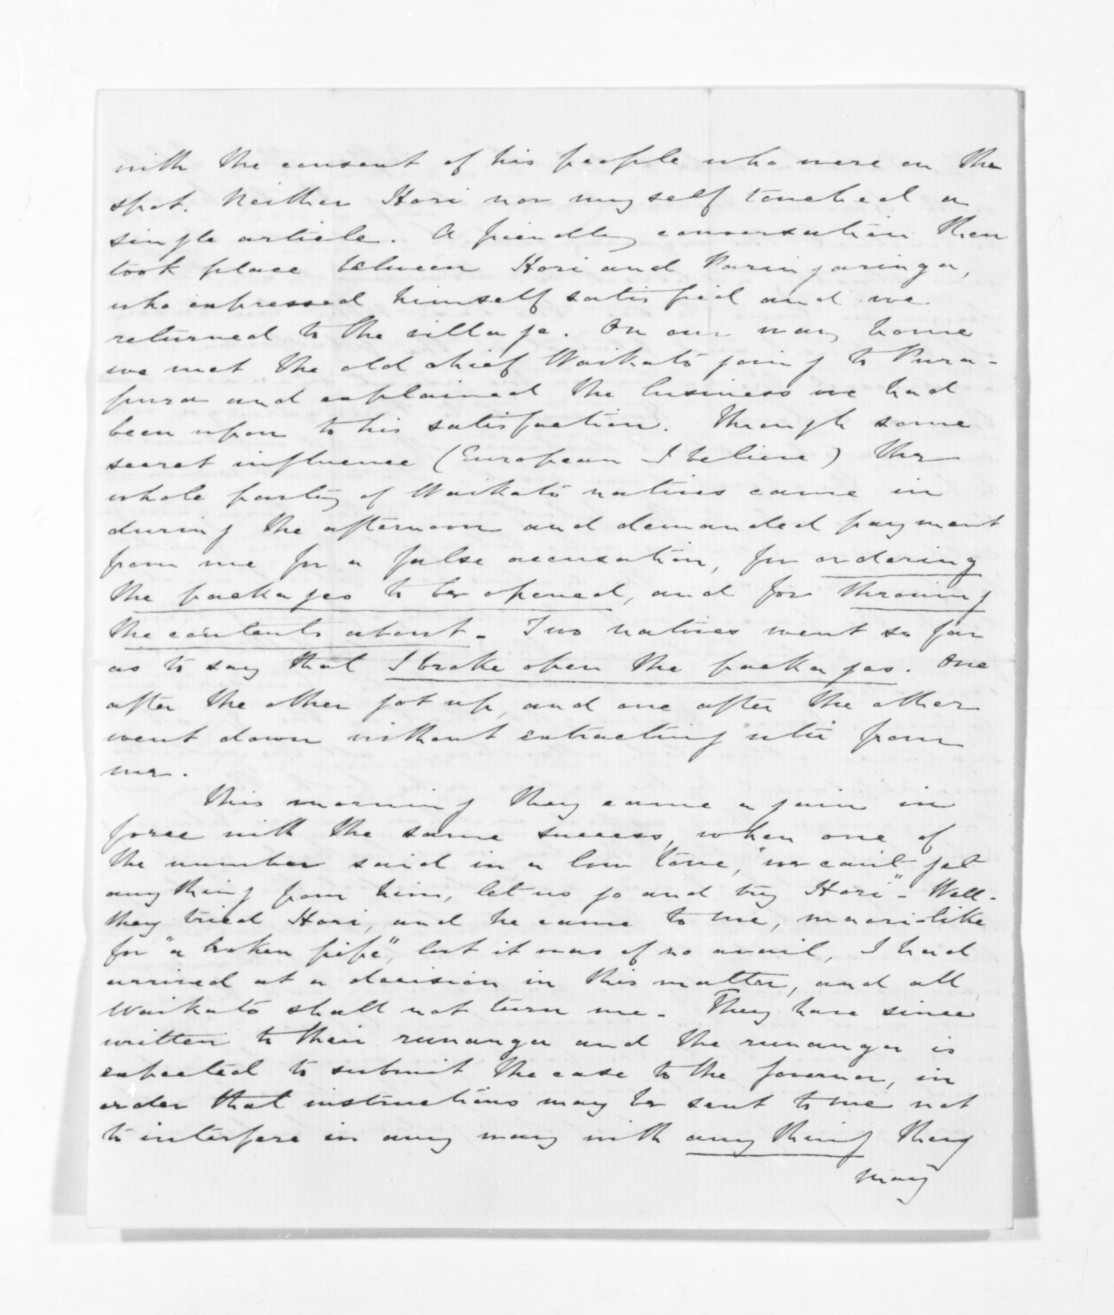 with the consent of his people who were on the
spot. Neither Hori nor myself touched a
single article. A friendly conversation then
took place between Hori and Paringaringa,
who expressed himself satisfied and we
returned to the village. On our way home
we met the old chief Waikato going to Pura-
pura and explained the business we had
been upon to his satisfaction. Through some
secret influence (European I believe) the
whole party of Waikato natives came in
during the afternoon and demanded payment
from me for a false accusation, for ordering
the packages to be opened, and for throwing
the contents about. Two natives went so far
as to say that I broke open the packages. One
after the other got up, and one after the other
went down without extracting utu from
me.
This morning they came again in
force with the same success, when one of
the number said in a low tone, "we can't get
anything from him, let us go and try Hori". Well-
they tried Hori, and he came to me, maori-like
for "a broken pipe", but it was of no avail, I had
arrived at a decision in this matter, and all
Waikato shall not turn me. They have since
written to their runanga and the runanga is
expected to submit the case to the Governor, in
order that instructions may be sent to me not
to interfere in any way with anything they
may